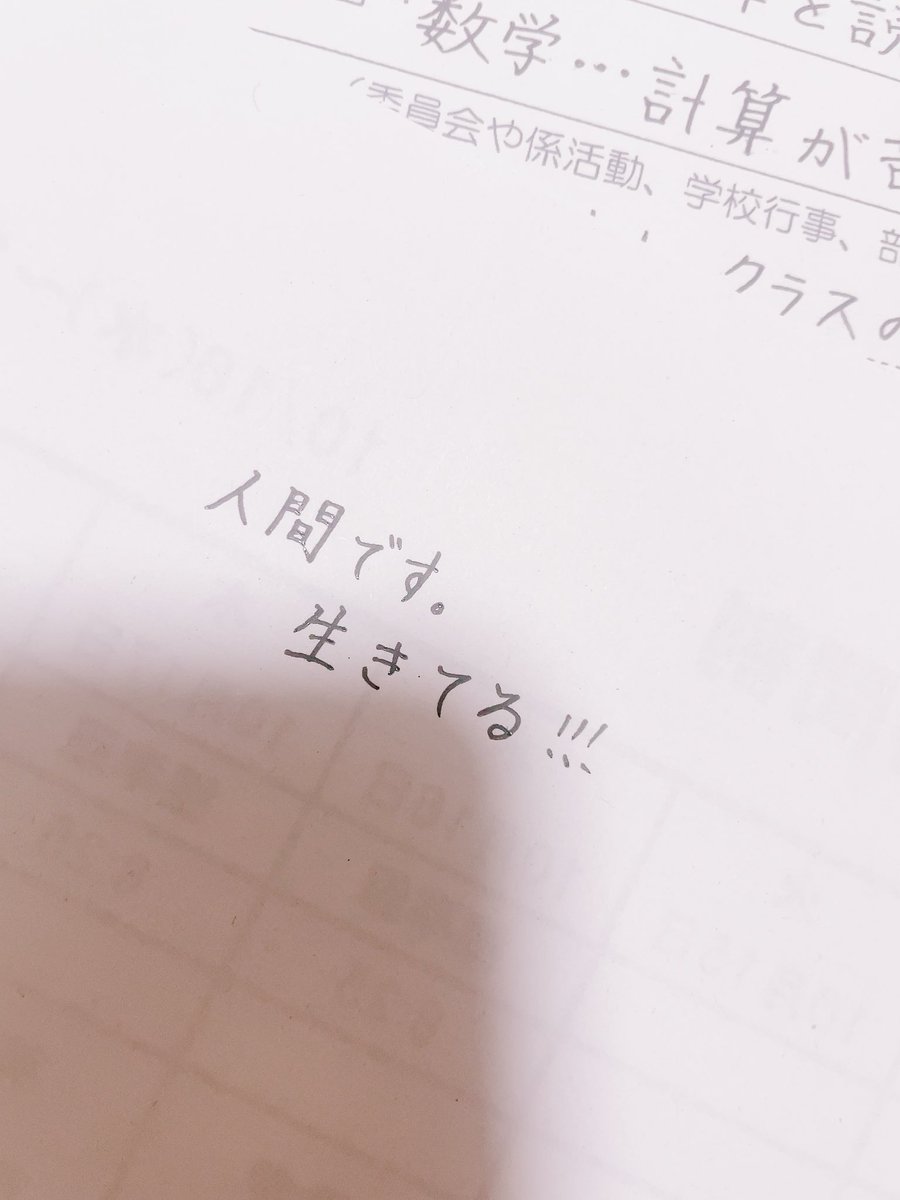 数学…計算が
(委員会や係活動、学校行事、部
クラスの
人間です。
生きてる!!!